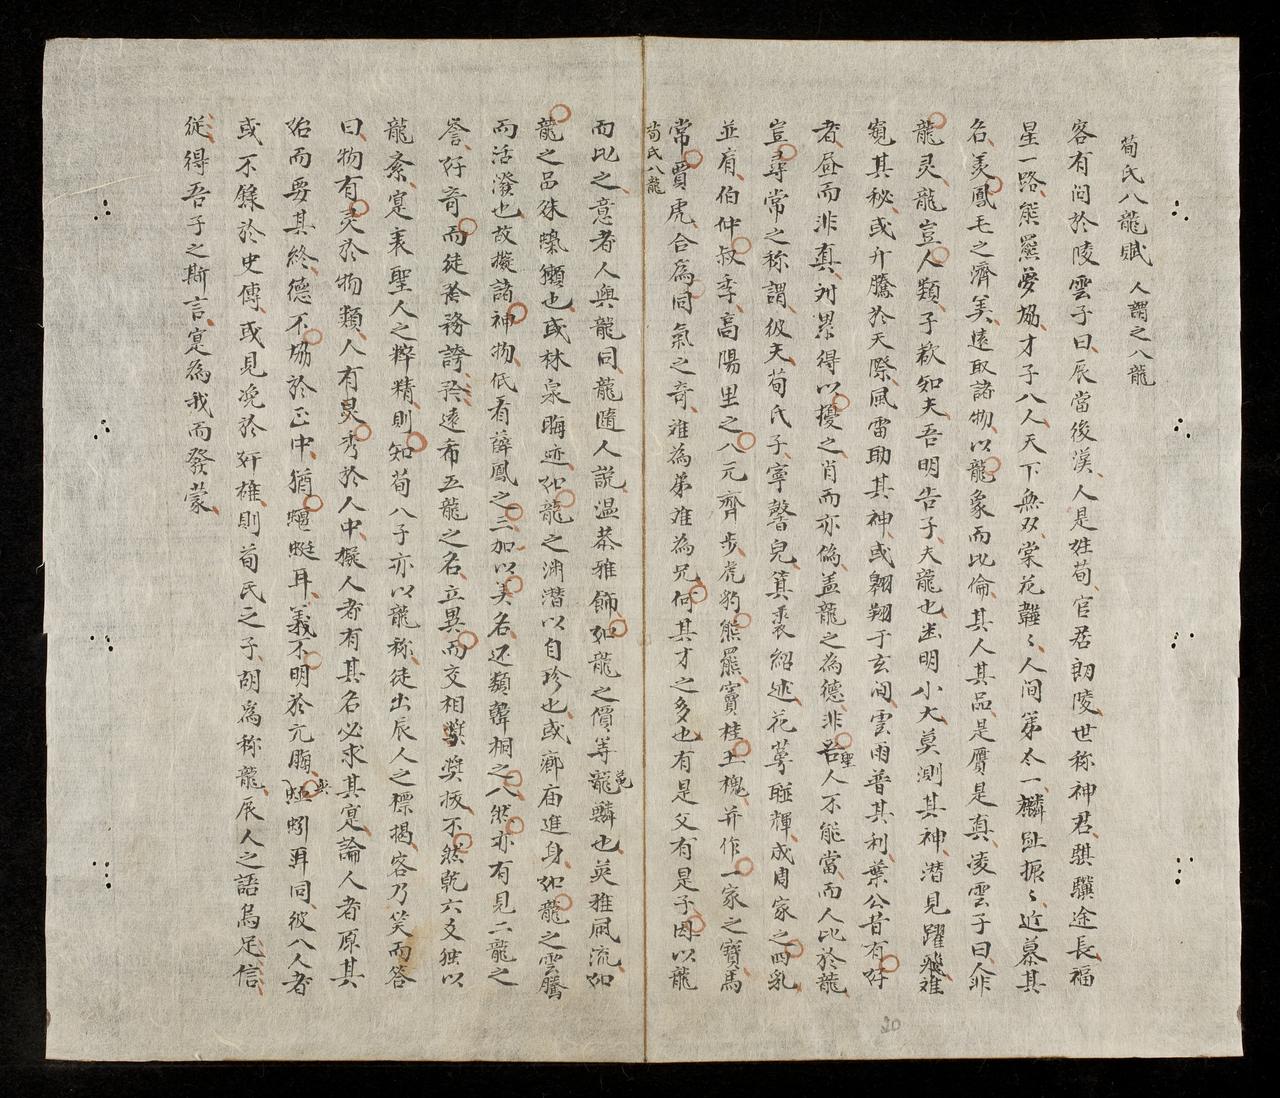 荀氏八龍賦 人謂之八龍
客有问於陵雲子曰辰當後漢人是姓荀官居朗陵世称神君騏驥途長福
星一路熊羆夢协才子八人天下無双棠花韡〻人间第一麟趾振〻近慕其
名羙鳳毛之濟羙遠取諸物以龍象而比倫其人其品是贋是真凌雲子曰人非
龍灵龍豈人類子欲知夫吾明告子夫龍也幽明小大莫測其神潜見躍飛难
窺其秘或升騰於天際風雷助其神或翱翔于玄间雲雨普其利葉公昔有好
者昼而非真刘累得以擾之肖而亦偽盖龍之為德非聖人不能當而人比於龍
豈尋常之称謂彼夫荀氏子寧馨兒箕裘紹述花萼联輝成周家之四乳
並肩伯仲叔季高陽里之八元齊步虎豹熊羆竇桂王槐并作一家之寶馬
常賈虎合為同氣之奇难為弟难為兄何其才之多也有是父有是子因以龍
荀氏八龍
而比之意者人與龍同龍隨人説温恭雅飾如龍之價等龍鱗也英雅風流如
龍之品殊獺也或林泉晦迹如龍之渊潜以自珍也或廊庙進身如龍之雲騰
而活潑也故擬諸神物低看薛鳳之三加以美名还類韓桐之八然亦有見二龍之
誉好奇而徒務誇矜遠希五龍之名立異而交相獎援不然乾六爻独以
龍系寔表聖人之粹精則知荀八子亦以龍称徒出辰人之標揭客乃笑而答
曰物有灵於物類人有灵秀於人中擬人者有其名必求其寔論人者原其
始而要其終德不协於正中猶蝘蜓耳義不明於亢晦與蚯蚓耳同彼八人者
或不錄於史傳或見浼於奸雄則荀氏之子胡為称龍辰人之語烏足信
從得吾子之斯言寔為我而發蒙
20